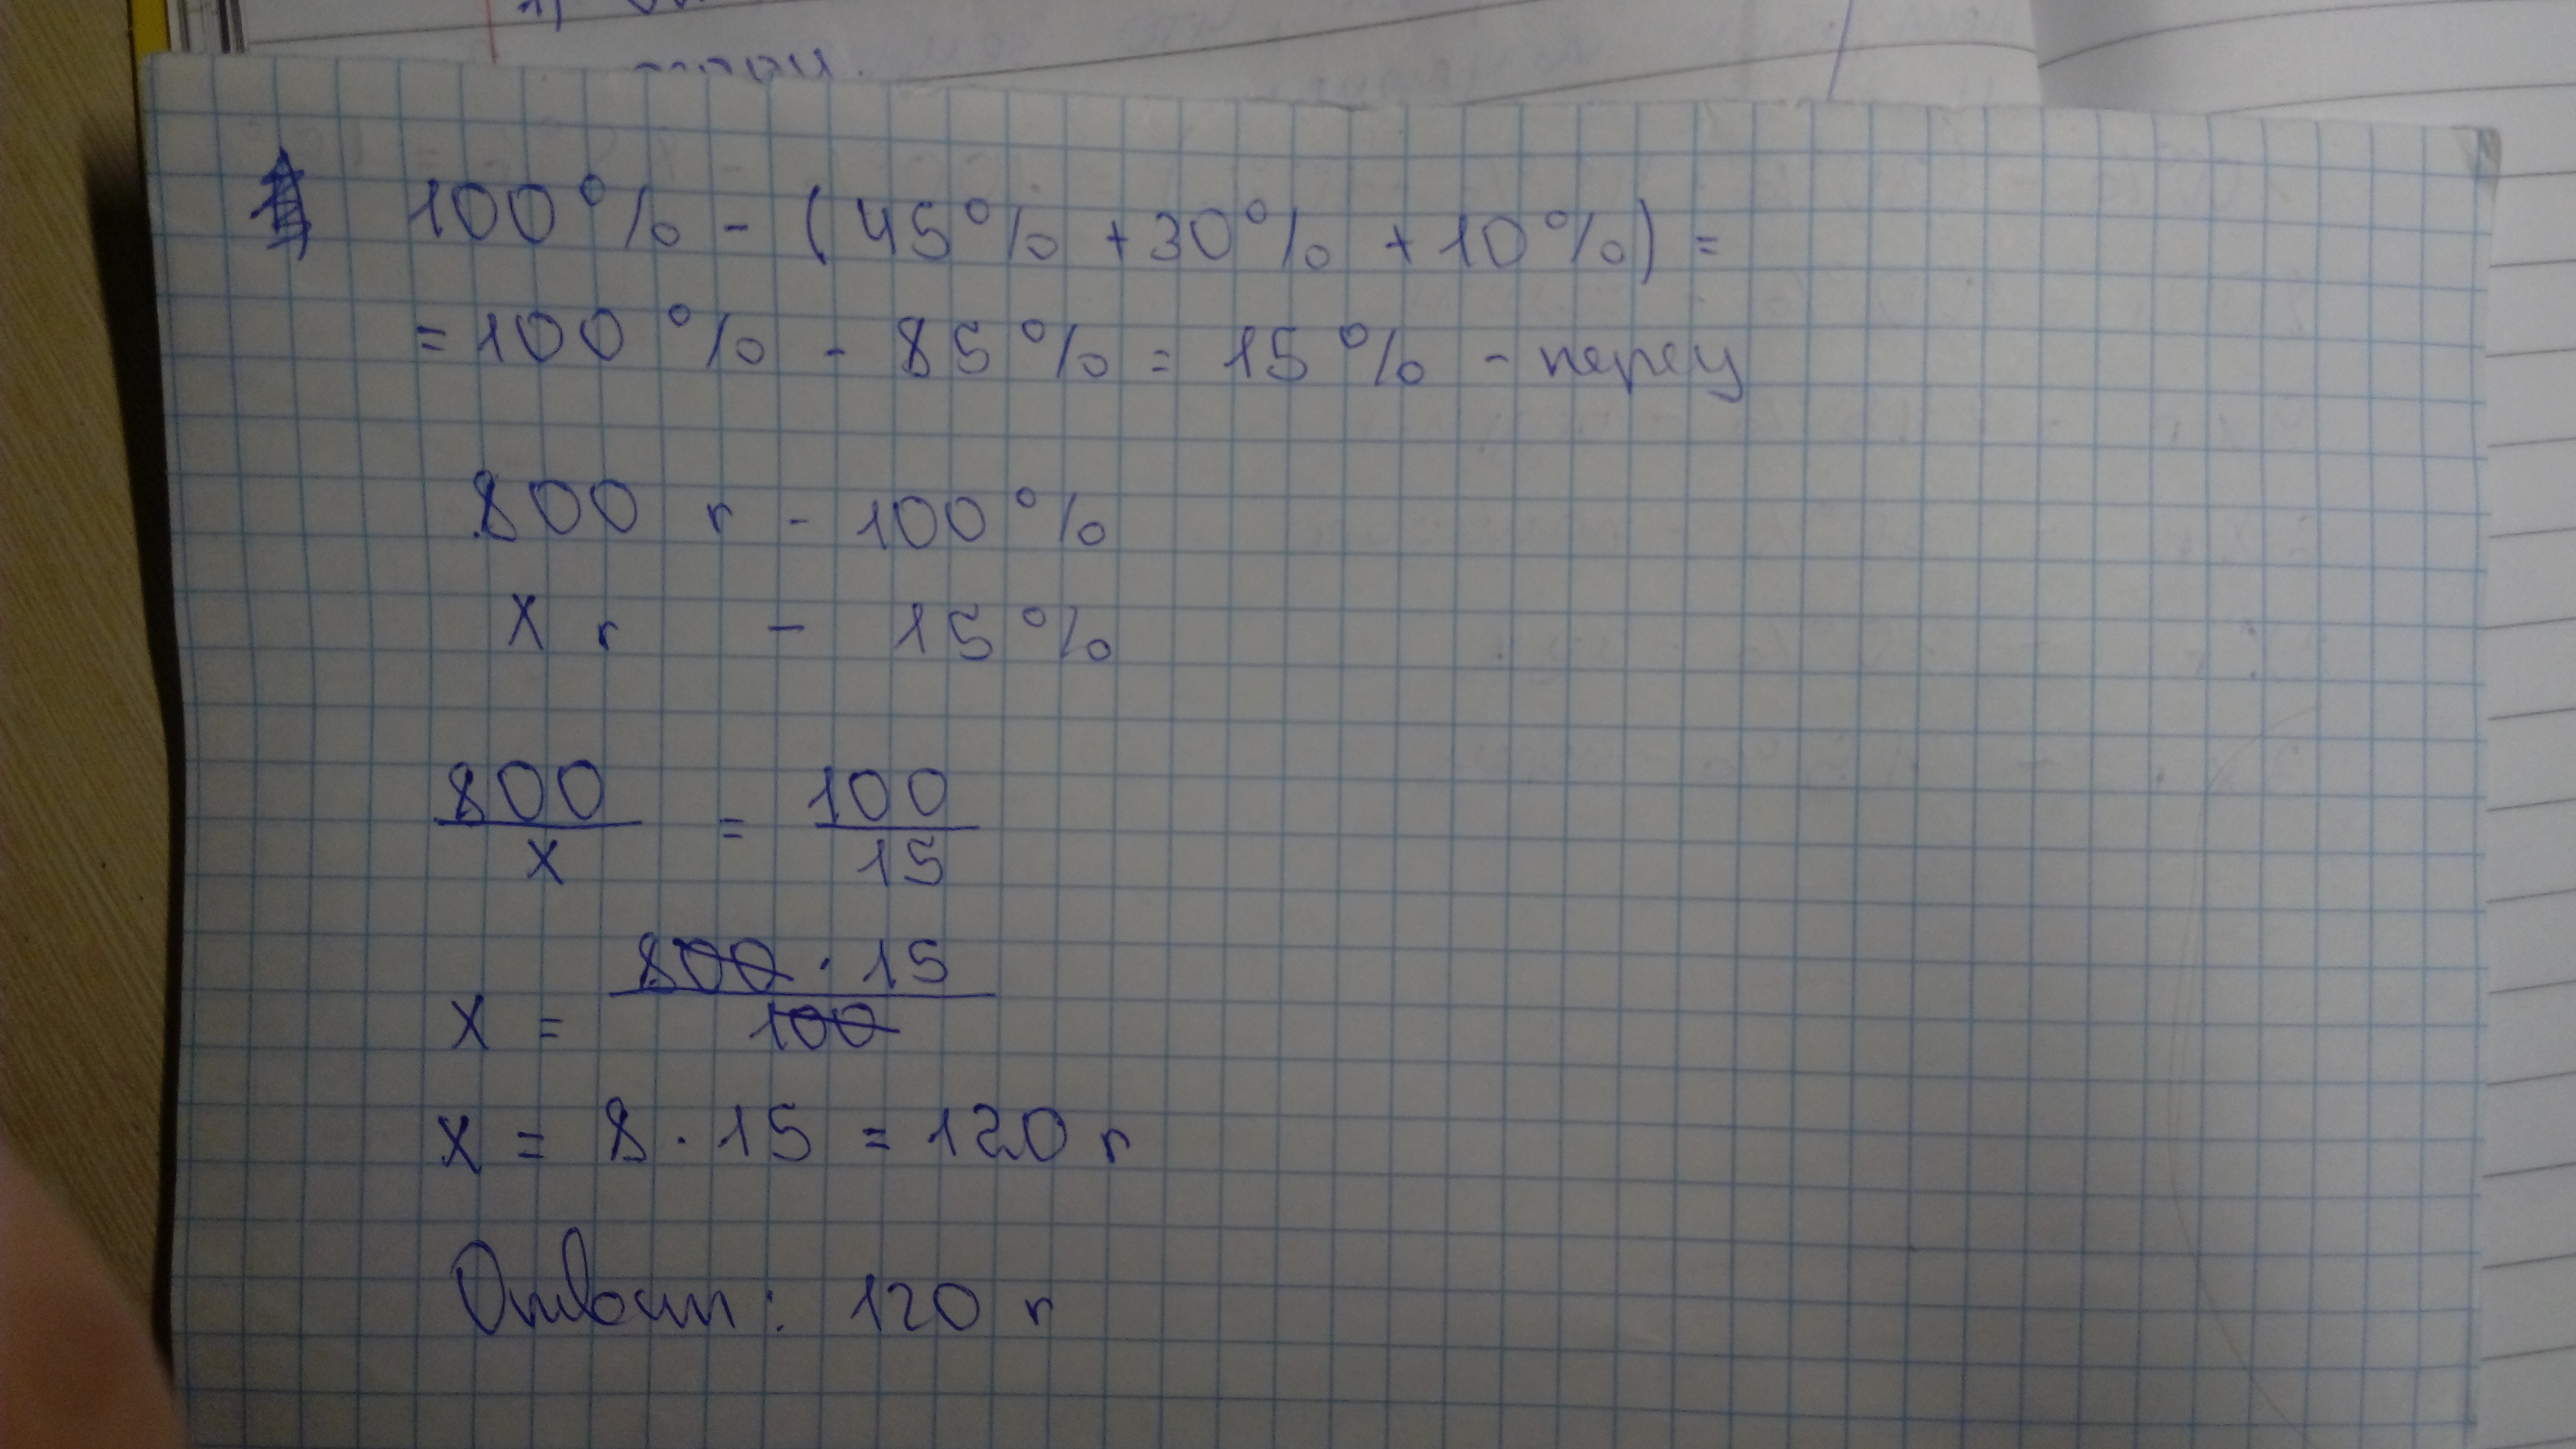 100% - (45% + 30% + 10%) =
= 100% - 85% = 15% - перец
800 г - 100%
x г - 15%
800/x = 100/15
x = 800 · 15/100
x = 8 · 15 = 120 г
Ответ: 120 г